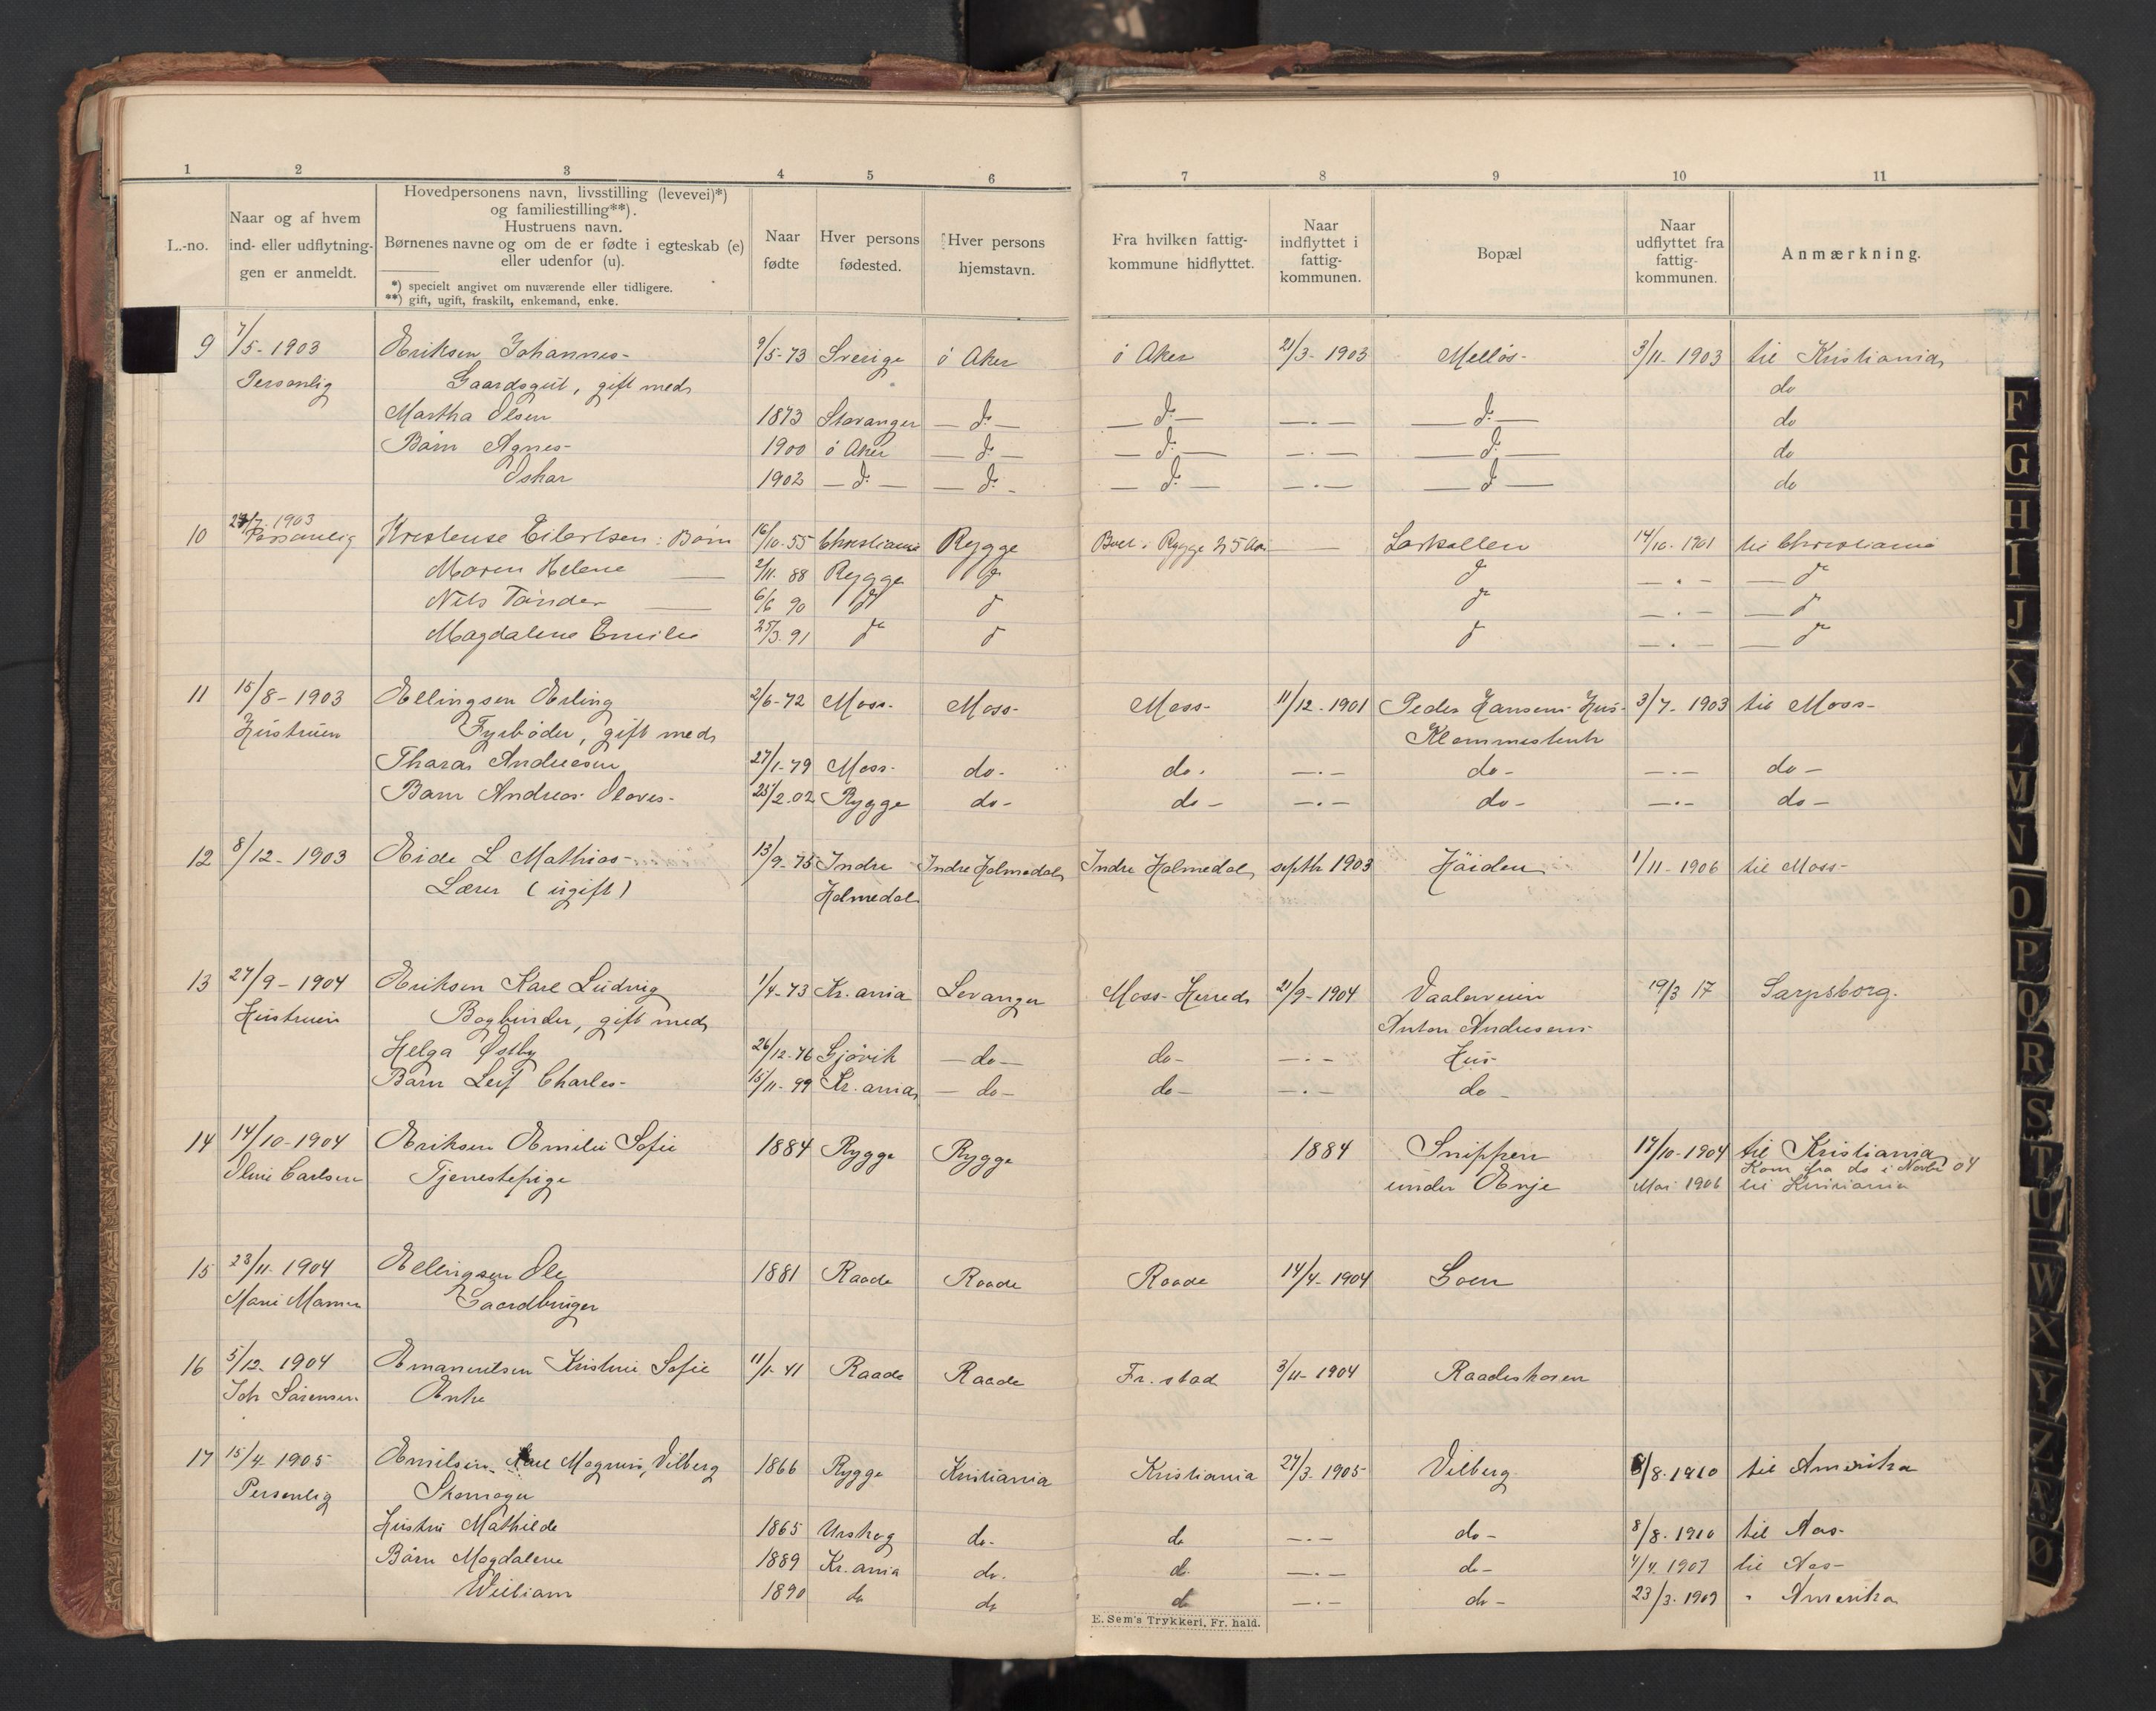 1 2 3 4 5 6 7 8 9 10 11
L.-no.
Naar og af hvem
ind- eller udflytnin-
gen er anmeldt.
Hovedpersonens navn, livsstilling (levevei)*)
og familiestilling**).
Hustruens navn.
Børnenes navne og om de er fødte i egteskab (e)
eller udenfor (u).
*) specielt angivet om nuværende eller tidligere.
**) gift, ugift, fraskilt, enkemand, enke.
Naar
fødte
Hver persons
fødested.
Hver persons
hjemstavn.
Fra hvilken fattig-
kommune hidflyttet.
Naar
indflyttet i
fattig-
kommunen.
Bopæl
Naar
udflyttet fra
fattig-
kommunen.
Anmærkning.
9 7/5-1903 Eriksen Johannes- 9/5-73 Sverige ö Aker ö Aker 21/3-1903 Mellös- 3/11-1903 til Kristiania
Personlig Gaardsgut, gift med do
Martha Olsen 1873 Stavanger — do — — do — — . — — do — do
Barn Agnes- 1900 ö Aker — do — — do — — . — — do — do
Oskar 1902 — do — — do - — do — — . — — do — do
10 1903 Kristense Eilertsen: Börn 16/10-55 Christiania Rygge Boet i Rygge 25 Aar — Larkollen 14/10.1901 til Christiania
Personlig
Maren Helene — 2/11.88 Rygge do do — . — — do
Nils Tander — 6/6 90 do do do — . — — do
Magdalene Emilie 25/3.91 do do do — . — — do
11 15/8-1903 Ellingsen Erling 2/6-72 Moss- Moss- Moss- 11/12-1901 Peder Hansens Hus- 3/7-1903 til Moss-
Hustruen Fyrböder, gift med Klommestenh
Thora Andresen 27/1-79 Moss- do- do. — . — do- — . — do —
Barn Andreas Olaves- 25/2.02 Rygge do- do — — . — do- — . — do —
12 8/12-1903 Eide L Mathias- 13/9-75 Indre Indre Holmedal Indre Holmedal septbr 1903 Höiden 1/11-1906 til Moss-
Lærer (ugift) Holmedal
13 27/9-1904 Eriksen Karl Ludvig 1/4-73 Kr.ania Levanger Moss Herred 21/9-1904 Vaalerveien 19/3 17 Sarpsborg.
Hustruen Bogbinder, gift med Anton Andresens
Helga Østby 26/12-76 Gjövik — do — do- — . — Hus-
Barn Leif Charles- 15/11-99 Kr.ania — do — do — — . — do —
14 14/10-1904 Eriksen Emilie Sofie 1884 Rygge Rygge 1884 Snippen 17/10-1904 til Kristiania
Kom fra do i Novbr 04
Oline Carlsen Tjenestepige under Enje Mai 1906 til Kristiania
15 23/11.1904 Ellingsen Ole 1881 Raade Raade Raade 14/4-1904 Goen
Marie Gaardbruger
16 5/12.1904 Emanuelsen Kristine Sofie 11/1-41 Raade Raade Fr.stad 3/11-1904 Raadeskoven
Joh Sörensen Enke
17 15/4.1905 Emilsen Karl Magnus, Vilberg 1866 Rygge Kristiania Kristiania 27/3.1905 Vilberg 8/8.1910 til Amerika
Personlig Skomager
Hustru Mathilde 1865 Urskog do- do — . — do- 8/8.1910 til Aas-
Barn Magdalene 1889 Kr.ania do. do. — . — do- 4/4.1907 til Aas-
William 1890 do do do — . — do- 23/3.1909 " Amerika
E. Sem's Trykkeri, Fr.hald.
F
G
H
I
J
K
L
M
N
O
P
Q
R
S
T
U
W
X
Y
Z
Æ
Ø